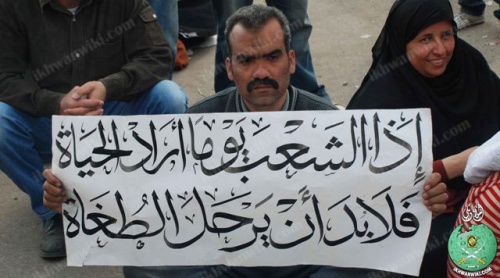 إذا الشعب يوما أراد الحياة
فلابد أن يرحل الطغاة
ikhwanwiki.com
IKHWANWIKI.COM